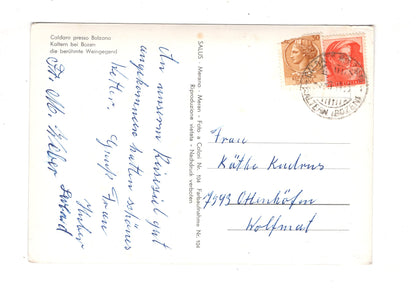 Caldaro presso Bolzano
Kaltern bei Bozen
die berühmte Weingegend
An unserm Reiseziel gut
angekommen hatten schönes
Wetter. Gruß Frau
Huber
SALUS - Merano - Meran - Foto a Colori Nr. 104 Farbaufnahme Nr. 104
Riproduzione vietata - Nachdruck verboten
Frau
Käthe Kudrus
7943 Ottenhöfen
Wolfmat